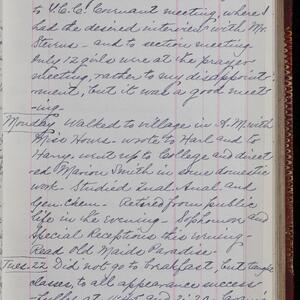 to Y.C.C. Covenant meeting, where I
had the desired interview with Mr.
Stevens - and to section meeting
Only 12 girls were at the prayer
meeting, rather to my disappoint-
ment, but it was a good meet-
ing.
Monday Walked to village in A.M. with
Miss Howes. wrote to Harl and to
Harry. went up to College and direct-
ed Marion Smith in some domestic
work. Studied Qual. Anal. and
Gen. Chem. - Retired from public
life in the evening - Sophomore and
Special Receptions this evening -
Read Old Maids Paradise.
Tues. 22 Did not go to breakfast, but taught
classes, to all appearance success-
fully at